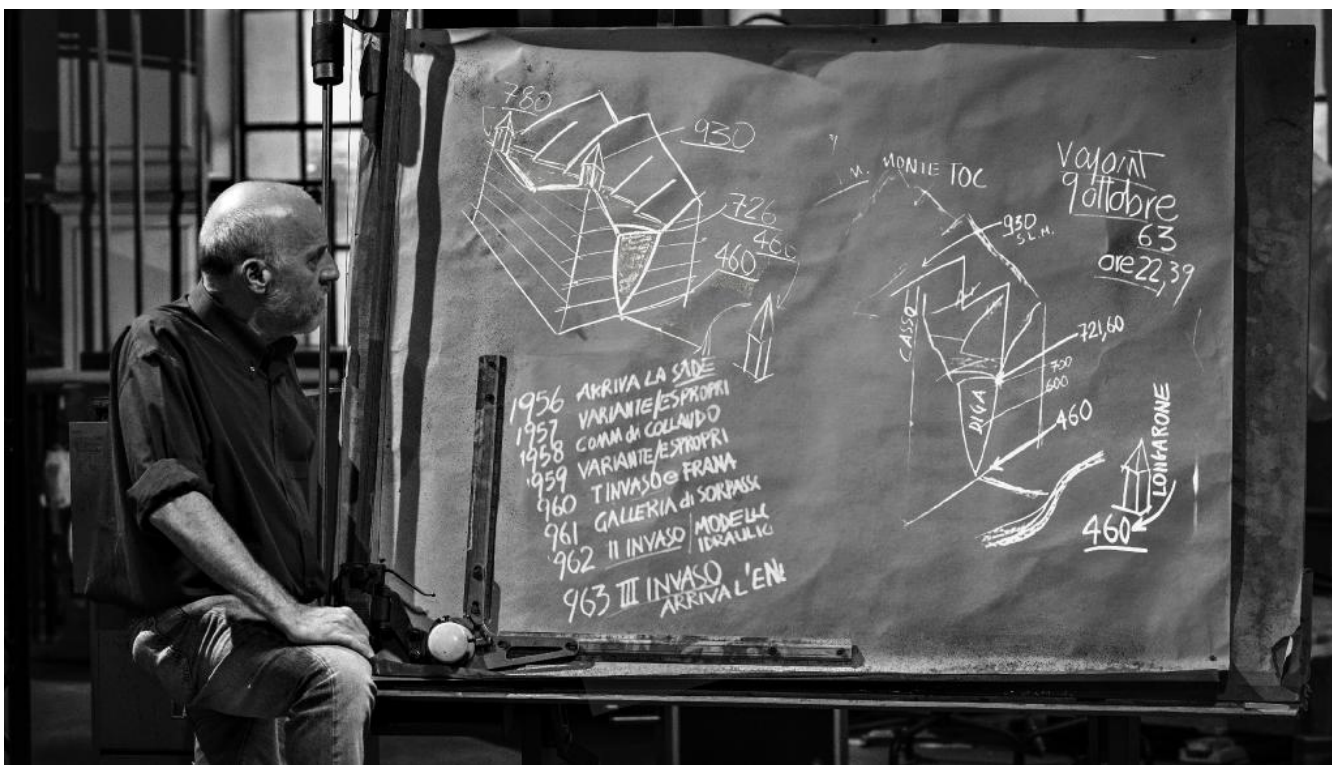 780
930
726
460
460
1956 ARRIVA LA SADE
1957 VARIANTE/ESPROPRI
1958 COMM di COLLAUDO
'959 VARIANTE/ESPROPRI
960 I INVASO e FRANA
961 GALLERIA di SORPASS
'962 II INVASO / MODELLO IDRAULIC
963 III INVASO
ARRIVA L'EN
MONTE TOC
930
S.L.M.
CASSO
721,60
700
600
DIGA
460
LONGARONE
460
Vajont
9 ottobre
63
ore 22,39